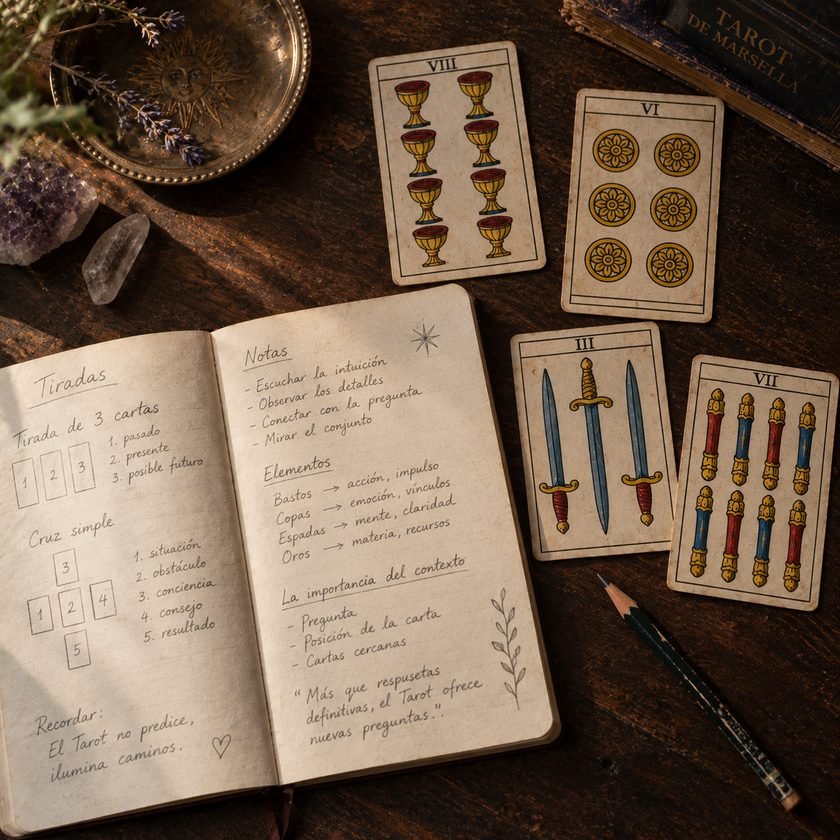 TAROT
DE MARSELLA
VIII
VI
III
VII
Tiradas
Tirada de 3 cartas
1 2 3
1. pasado
2. presente
3. posible futuro
Cruz simple
3
1 2 4
5
1. situación
2. obstáculo
3. conciencia
4. consejo
5. resultado
Recordar:
El Tarot no predice,
ilumina caminos.
Notas
- Escuchar la intuición
- Observar los detalles
- Conectar con la pregunta
- Mirar el conjunto
Elementos
Bastos → acción, impulso
Copas → emoción, vínculos
Espadas → mente, claridad
Oros → materia, recursos
La importancia del contexto
- Pregunta
- Posición de la carta
- Cartas cercanas
"Más que respusetas
definitivas, el Tarot ofrece
nuevas preguntas."